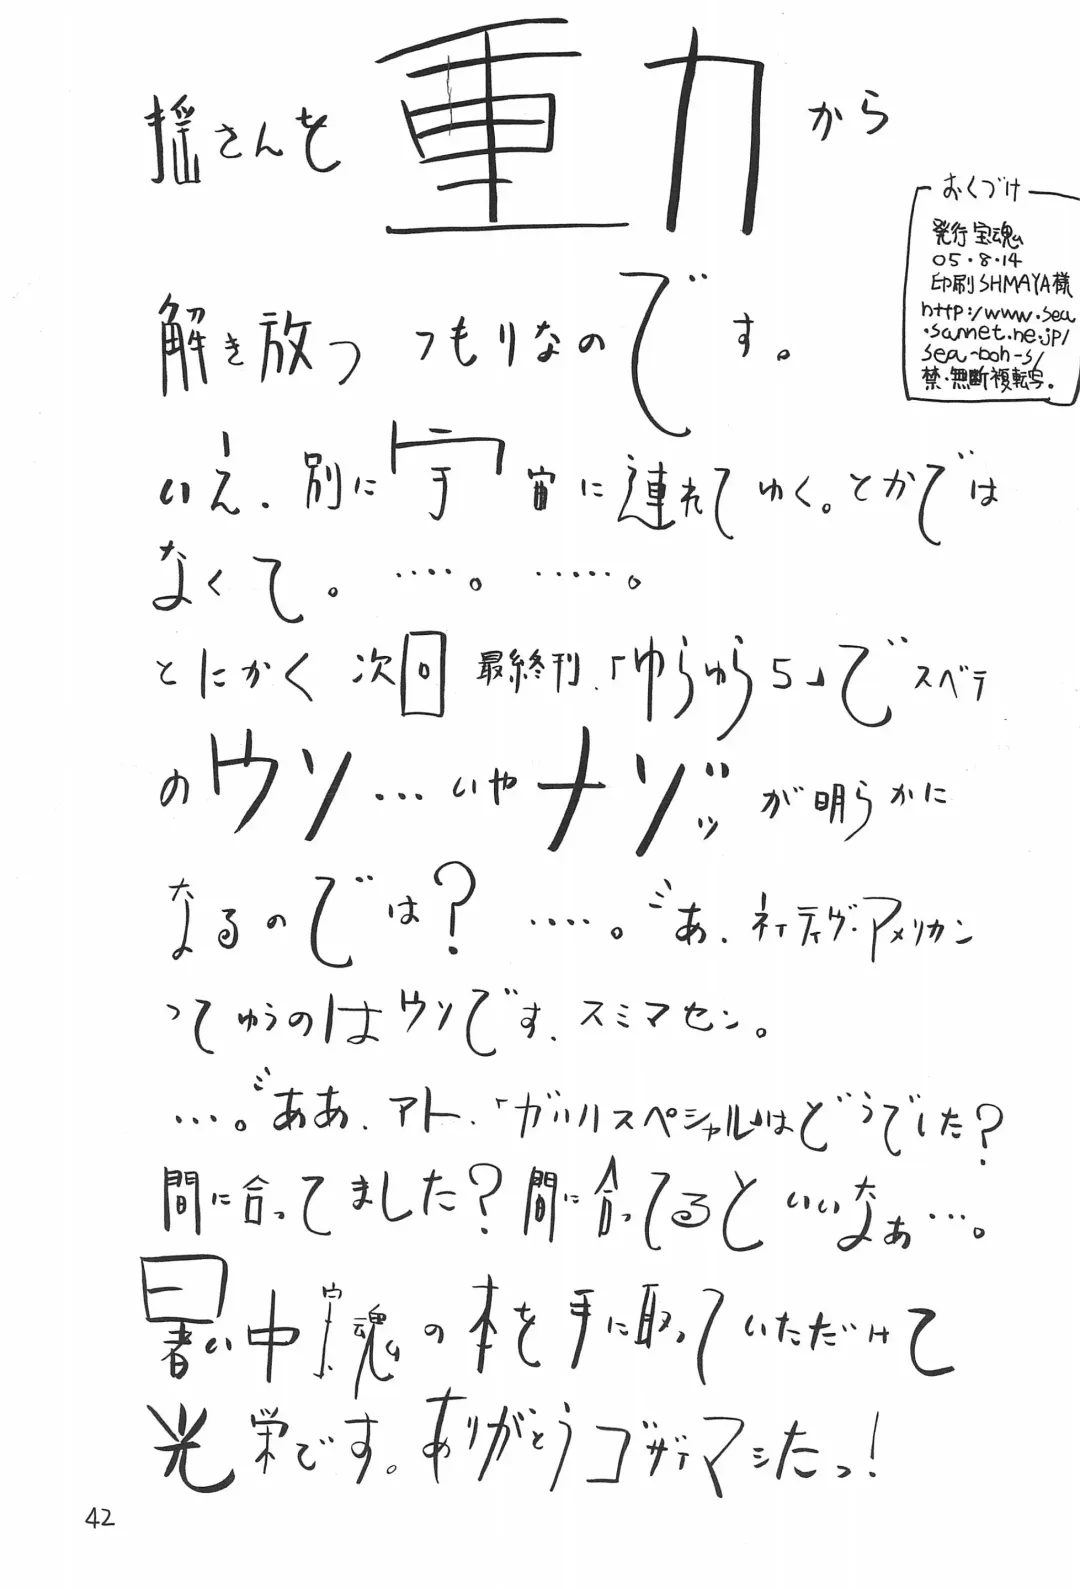 揺さんを重力から
解き放つつもりなのです。
いえ、別に宇宙に連れてゆく。とかでは
なくて。‥‥。‥‥‥。
とにかく次回最終刊、「ゆらゆら5」でスベテ
のウソ…いやナゾッが明らかに
なるのでは?‥‥。゛あ、ネイティヴ・アメリカン
ってゆうのはウソです、スミマセン。
…。゛ああ、アト、「ガルルスペシャル」はどうでした?
間に合ってました?間に合ってるといいなぁ…。
暑い中宝魂の本を手に取っていただけて
光栄です。ありがとうゴザイマシたっ!
おくづけ
発行 宝魂
05・8・14
印刷 SHMAYA様
http://www.sea
.sannet.ne.jp/
sea-boh-s/
禁・無断複転写。
42